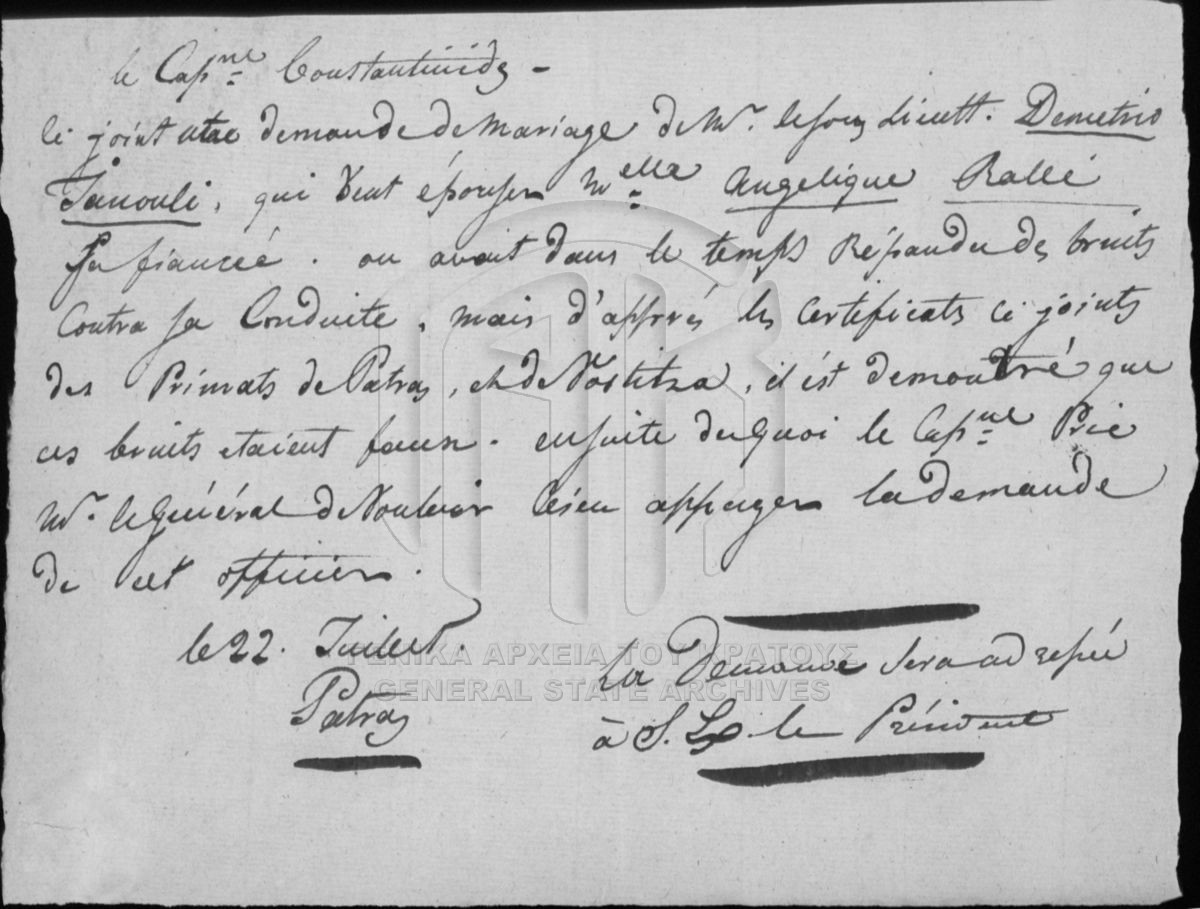 le Cap^ne Constantinides -
Ci joint une demande de Mariage de Mr. le sous Lieutt. Demetrio
Janouli, qui veut épouser M^elle Angelique Rallé
sa fiancée. on avait dans le temps Répandu des bruits
Contre sa Conduite, mais d'apprés les Certificats ci joints
des Primats de Patras, et de Vostitza, il ést demontré que
ces bruits etaient faux. ensuite de quoi le Cap^ne Prie
Mr. le Général de Vouloir bien appuyer la demande
de cet officier.
le 22. Juillet.
Patras
La Demande sera adressée
à S. Ex. le Président
ΓΕΝΙΚΑ ΑΡΧΕΙΑ ΤΟΥ ΚΡΑΤΟΥΣ
GENERAL STATE ARCHIVES